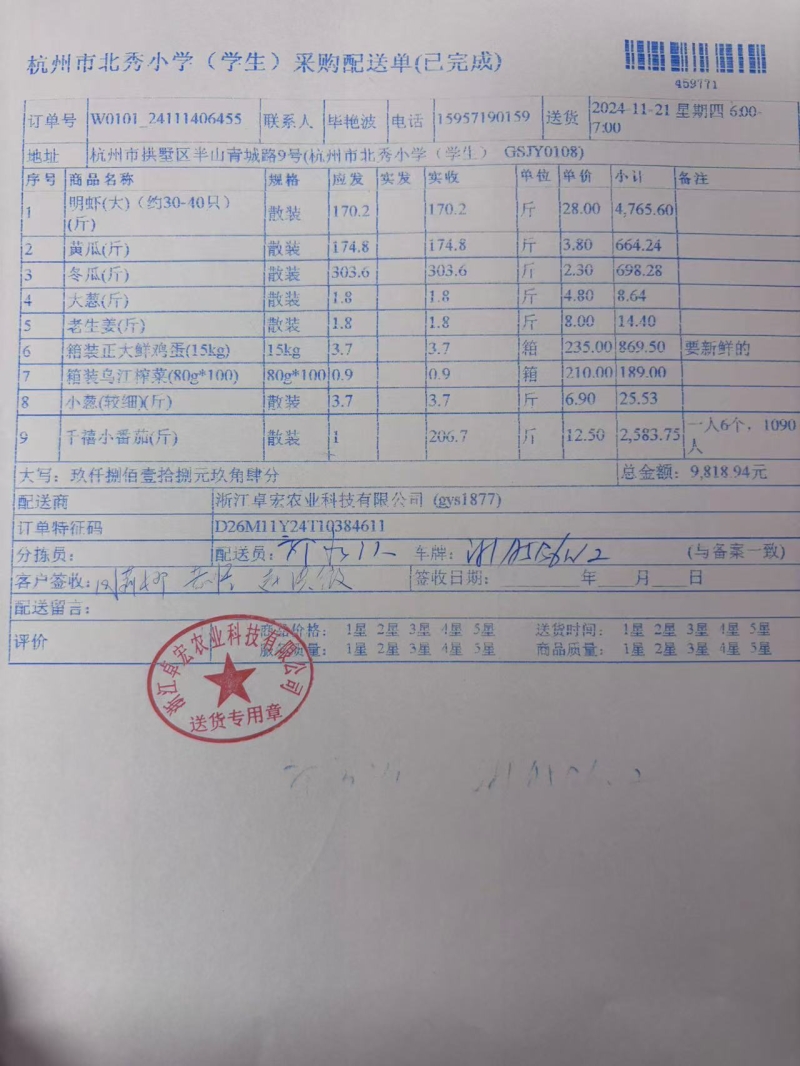 杭州市北秀小学（学生）采购配送单(已完成)
459771
订单号 W0101_24111406455 联系人 毕艳波 电话 15957190159 送货 2024-11-21 星期四 6:00-7:00
地址 杭州市拱墅区半山青城路9号(杭州市北秀小学（学生） GSJY0108)
序号 商品名称 规格 应发 实发 实收 单位 单价 小计 备注
1 明虾(大)（约30-40只）(斤) 散装 170.2 170.2 斤 28.00 4,765.60
2 黄瓜(斤) 散装 174.8 174.8 斤 3.80 664.24
3 冬瓜(斤) 散装 303.6 303.6 斤 2.30 698.28
4 大葱(斤) 散装 1.8 1.8 斤 4.80 8.64
5 老生姜(斤) 散装 1.8 1.8 斤 8.00 14.40
6 箱装正大鲜鸡蛋(15kg) 15kg 3.7 3.7 箱 235.00 869.50 要新鲜的
7 箱装乌江榨菜(80g*100) 80g*100 0.9 0.9 箱 210.00 189.00
8 小葱(较细)(斤) 散装 3.7 3.7 斤 6.90 25.53
9 千禧小番茄(斤) 散装 1 206.7 斤 12.50 2,583.75 一人6个，1090人
大写：玖仟捌佰壹拾捌元玖角肆分 总金额：9,818.94元
配送商 浙江卓宏农业科技有限公司 (gys1877)
订单特征码 D26M11Y24T10384611
分拣员： 配送员： 车牌： (与备案一致)
客户签收： 签收日期： 年 月 日
配送留言：
评价 商品价格： 1星 2星 3星 4星 5星 送货时间： 1星 2星 3星 4星 5星
服务质量： 1星 2星 3星 4星 5星 商品质量： 1星 2星 3星 4星 5星
浙江卓宏农业科技有限公司
送货专用章